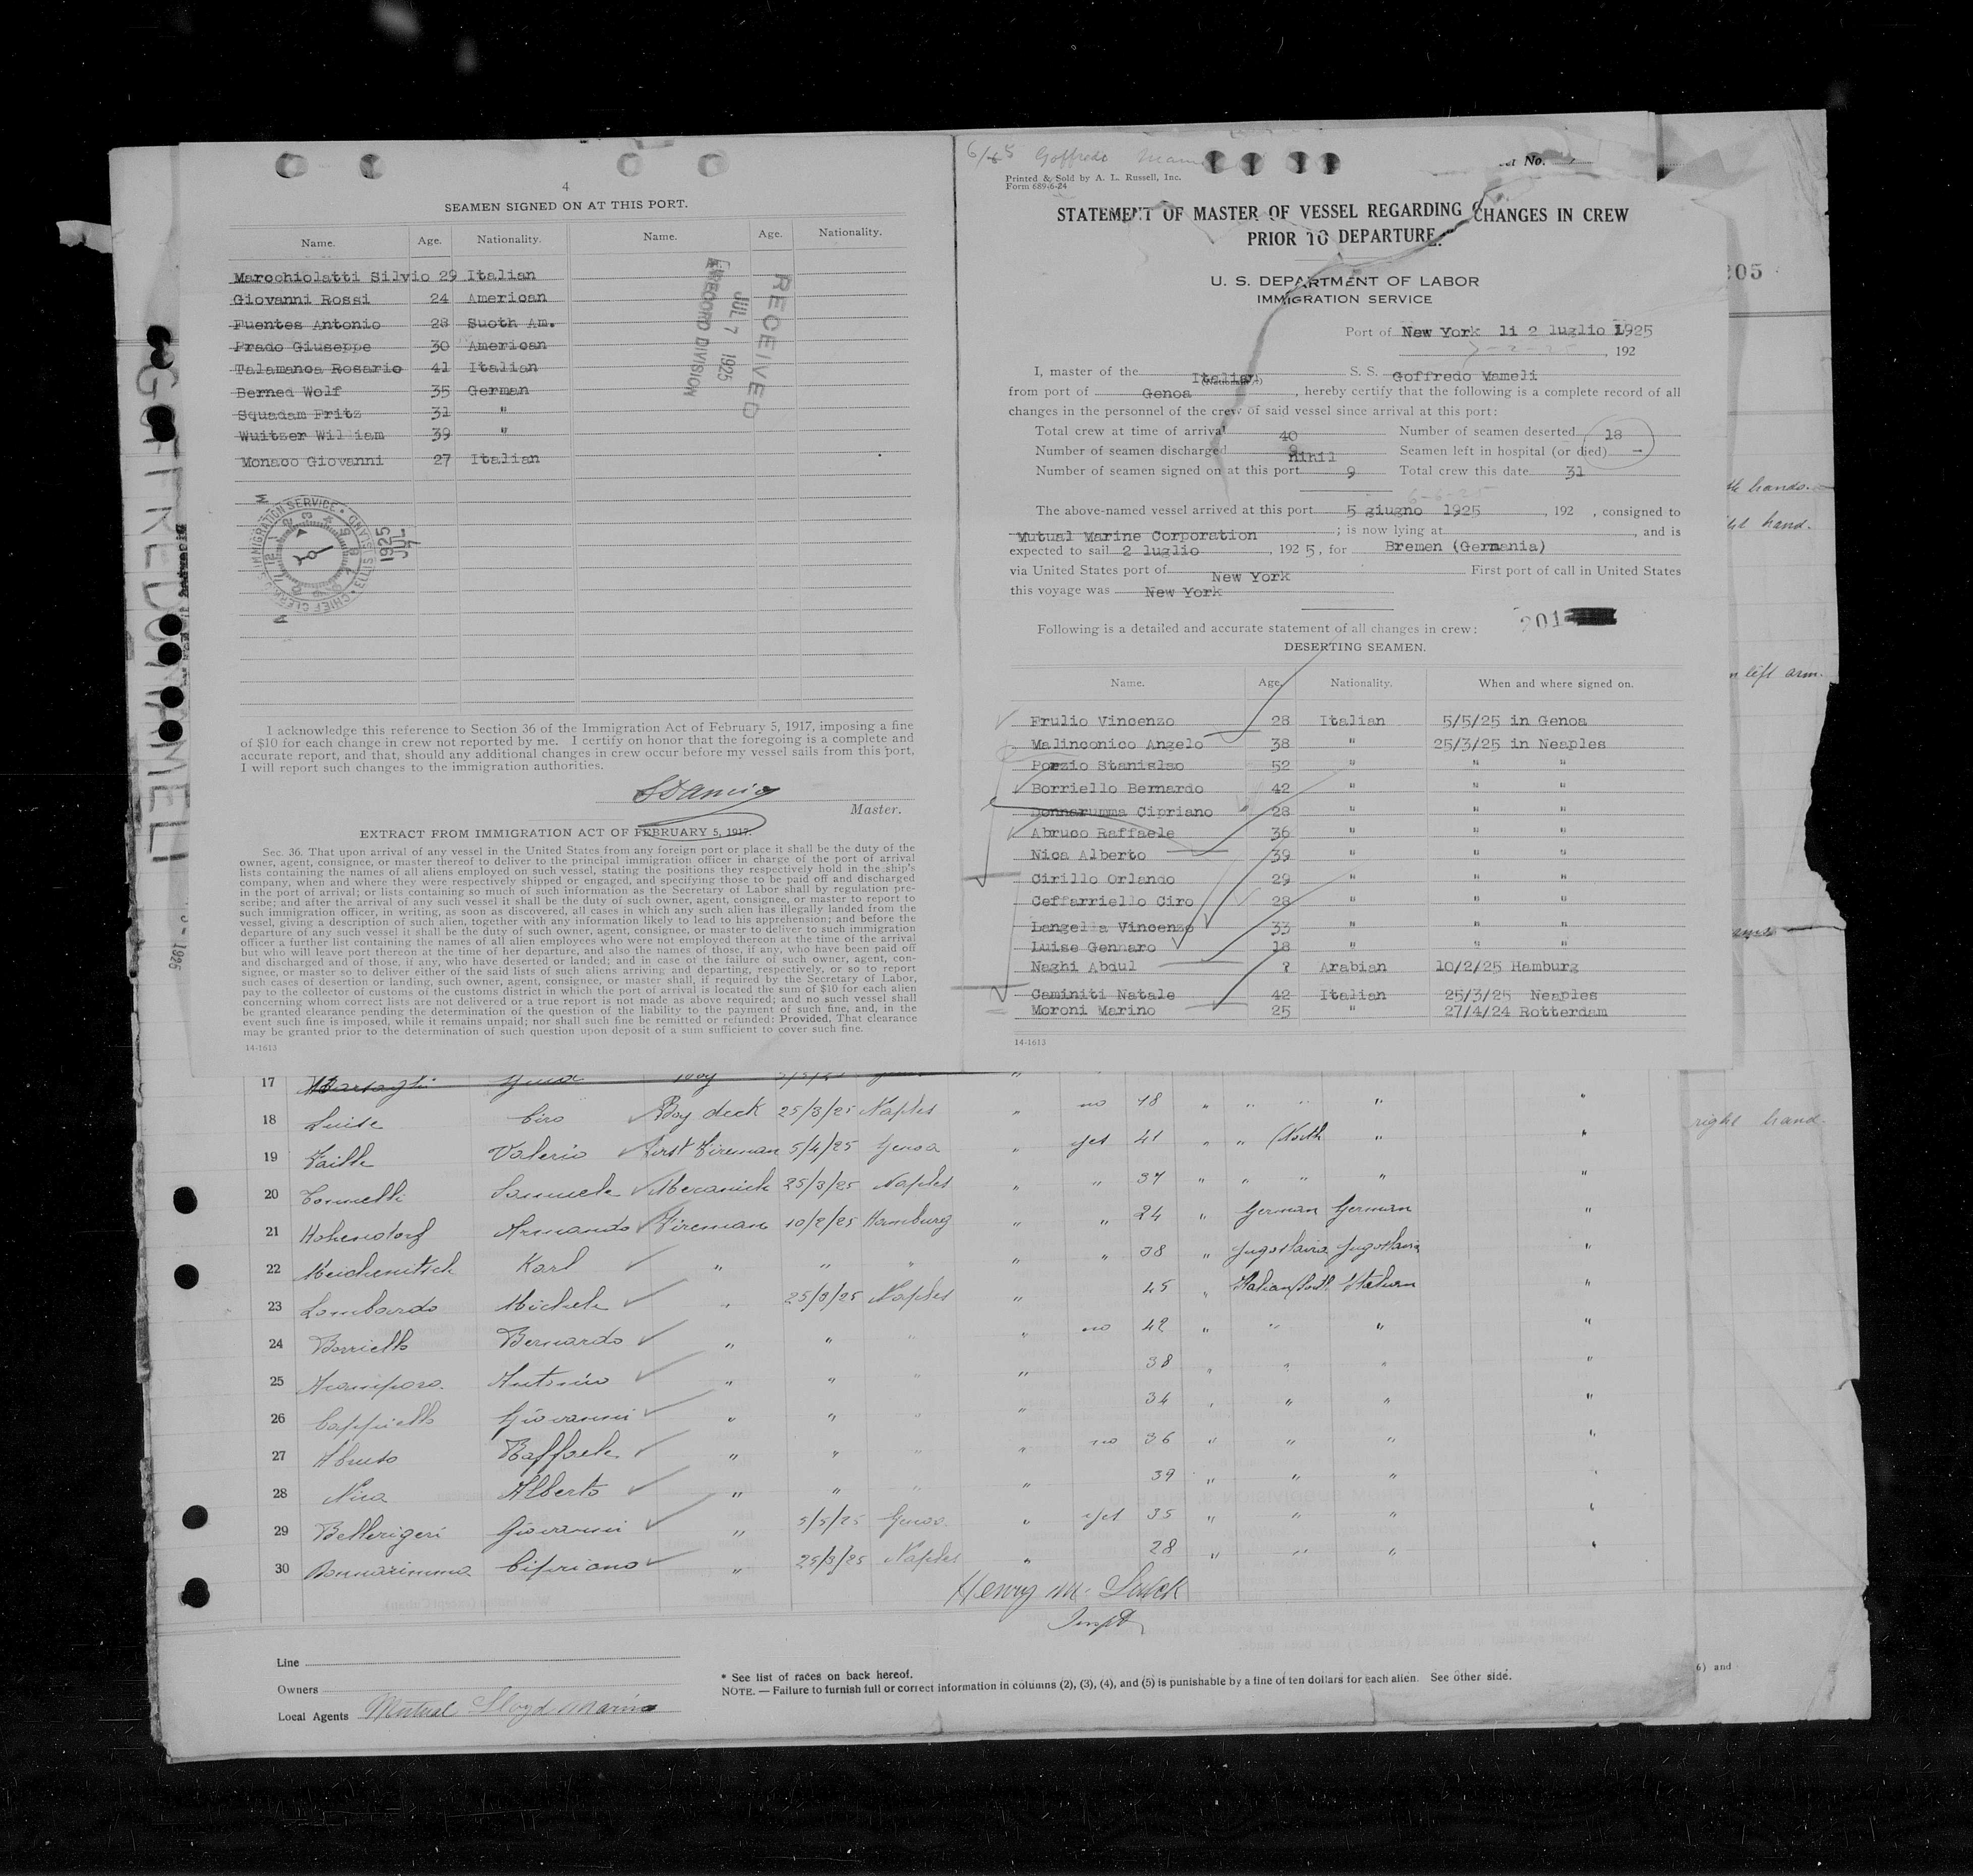 4
SEAMEN SIGNED ON AT THIS PORT.
Name. Age. Nationality. Name. Age. Nationality.
Marochiolatti Silvio 29 Italian
Giovanni Rossi 24 American
Fuentes Antonio 28 Suoth Am.
Prado Giuseppe 30 American
Talamanca Rosario 41 Italian
Berned Wolf 35 German
Squadam Fritz 31 "
Wuitzer William 39 "
Monaco Giovanni 27 Italian
RECEIVED
JUL 7 1925
RECORD DIVISION
IMMIGRATION SERVICE • ELLIS ISLAND • CHIEF CLERK
JUL 7 1925
I acknowledge this reference to Section 36 of the Immigration Act of February 5, 1917, imposing a fine
of $10 for each change in crew not reported by me. I certify on honor that the foregoing is a complete and
accurate report, and that, should any additional changes in crew occur before my vessel sails from this port,
I will report such changes to the immigration authorities.
Master.
EXTRACT FROM IMMIGRATION ACT OF FEBRUARY 5, 1917.
Sec. 36. That upon arrival of any vessel in the United States from any foreign port or place it shall be the duty of the
owner, agent, consignee, or master thereof to deliver to the principal immigration officer in charge of the port of arrival
lists containing the names of all aliens employed on such vessel, stating the positions they respectively hold in the ship's
company, when and where they were respectively shipped or engaged, and specifying those to be paid off and discharged
in the port of arrival; or lists containing so much of such information as the Secretary of Labor shall by regulation pre-
scribe; and after the arrival of any such vessel it shall be the duty of such owner, agent, consignee, or master to report to
such immigration officer, in writing, as soon as discovered, all cases in which any such alien has illegally landed from the
vessel, giving a description of such alien, together with any information likely to lead to his apprehension; and before the
departure of any such vessel it shall be the duty of such owner, agent, consignee, or master to deliver to such immigration
officer a further list containing the names of all alien employees who were not employed thereon at the time of the arrival
but who will leave port thereon at the time of her departure, and also the names of those, if any, who have been paid off
and discharged and of those, if any, who have deserted or landed; and in case of the failure of such owner, agent, con-
signee, or master so to deliver either of the said lists of such aliens arriving and departing, respectively, or so to report
such cases of desertion or landing, such owner, agent, consignee, or master shall, if required by the Secretary of Labor,
pay to the collector of customs of the customs district in which the port of arrival is located the sum of $10 for each alien
concerning whom correct lists are not delivered or a true report is not made as above required; and no such vessel shall
be granted clearance pending the determination of the question of the liability to the payment of such fine, and, in the
event such fine is imposed, while it remains unpaid; nor shall such fine be remitted or refunded: Provided, That clearance
may be granted prior to the determination of such question upon deposit of a sum sufficient to cover such fine.
14-1613
Goffredo
No.
Printed & Sold by A. L. Russell, Inc.
Form 689-6-24
STATEMENT OF MASTER OF VESSEL REGARDING CHANGES IN CREW
PRIOR TO DEPARTURE.
U. S. DEPARTMENT OF LABOR
IMMIGRATION SERVICE
Port of New York li 2 luglio 1925
7-2-25, 192
I, master of the Italian S. S. Goffredo Mameli
from port of Genoa, hereby certify that the following is a complete record of all
changes in the personnel of the crew of said vessel since arrival at this port:
Total crew at time of arrival 40 Number of seamen deserted 18
Number of seamen discharged nihil Seamen left in hospital (or died) -
Number of seamen signed on at this port 9 Total crew this date 31
6-6-25
The above-named vessel arrived at this port 5 giugno 1925, 192 , consigned to
Mutual Marine Corporation; is now lying at , and is
expected to sail 2 luglio, 1925, for Bremen (Germania)
via United States port of New York First port of call in United States
this voyage was New York
201
Following is a detailed and accurate statement of all changes in crew:
DESERTING SEAMEN.
Name. Age. Nationality. When and where signed on.
Frulio Vincenzo 28 Italian 5/5/25 in Genoa
Malinconico Angelo 38 " 25/3/25 in Neaples
Porzio Stanislao 52 " " "
Borriello Bernardo 42 " " "
Donnarumma Cipriano 28 " " "
Abruco Raffaele 36 " " "
Nica Alberto 39 " " "
Cirillo Orlando 29 " " "
Ceffarriello Ciro 28 " " "
Langella Vincenzo 33 " " "
Luise Gennaro 18 " " "
Naghi Abdul ? Arabian 10/2/25 Hamburg
Caminiti Natale 42 Italian 25/3/25 Neaples
Moroni Marino 25 " 27/4/24 Rotterdam
14-1613
17
18 Luise Ciro Boy deck 25/3/25 Naples " no 18 " " " "
19 Valerio First Fireman 5/4/25 Genoa " yes 41 " " (North " "
20 Samuele Mecanick 25/3/25 Naples " " 37 " " " " "
21 Hohendorf Armando Fireman 10/2/25 Hamburg " " 24 " German German "
22 Karl " " " " " 38 " Jugoslavia Jugoslavia "
23 Lombardo Michele " 25/3/25 Naples " 45 " Italian South Italian "
24 Borriello Bernardo " " " " no 42 " " " "
25 Antonio " " " " 38 " " " "
26 Cappiello Giovanni " " " " 34 " " " "
27 Raffaele " " " " no 36 " " " "
28 Nica Alberto " " " " 39 " " " "
29 Bellerigeri Giovanni " 5/5/25 Genoa " yes 35 " " " "
30 Donnarimma Cipriano " 25/3/25 Naples " 28 " " " "
Henry M.
Line
Owners
Local Agents Mutual Lloyd Marine
* See list of races on back hereof.
NOTE. — Failure to furnish full or correct information in columns (2), (3), (4), and (5) is punishable by a fine of ten dollars for each alien. See other side.
GOFFREDO MAMELI
1925
205
hands.
hand.
left arm.
right hand.
6) and